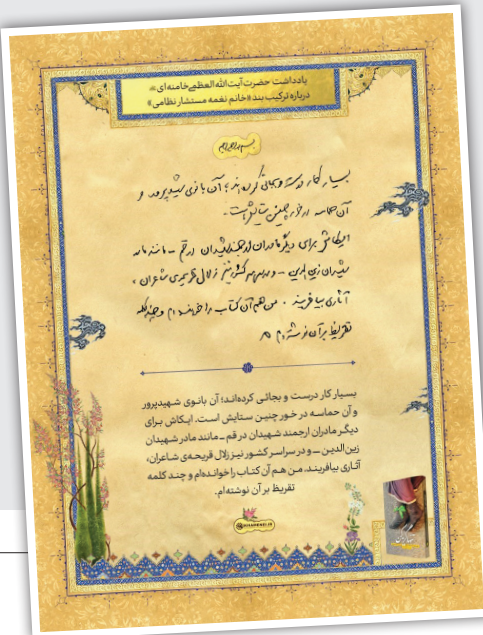 یادداشت حضرت آیت‌الله العظمی خامنه‌ای
درباره ترکیب بند «خانم نغمه مستشار نظامی»
بسم الله الرحمن الرحیم
بسیار کار درست و بجائی کرده‌اند؛ آن بانوی شهیدپرور و
آن حماسه در خور چنین ستایش است.
ایکاش برای دیگر مادران ارجمند شهیدان در قم ــ مانند مادر
شهیدان زین‌الدین ــ و در سراسر کشور نیز زلال قریحه‌ی شاعران،
آثاری بیافریند. من هم آن کتاب را خوانده‌ام و چند کلمه
تقریظ بر آن نوشته‌ام
بسیار کار درست و بجائی کرده‌اند؛ آن بانوی شهیدپرور
و آن حماسه در خور چنین ستایش است. ایکاش برای
دیگر مادران ارجمند شهیدان در قم ــ مانند مادر شهیدان
زین‌الدین ــ و در سراسر کشور نیز زلال قریحه‌ی شاعران،
آثاری بیافریند. من هم آن کتاب را خوانده‌ام و چند کلمه
تقریظ بر آن نوشته‌ام.
KHAMENEI.IR